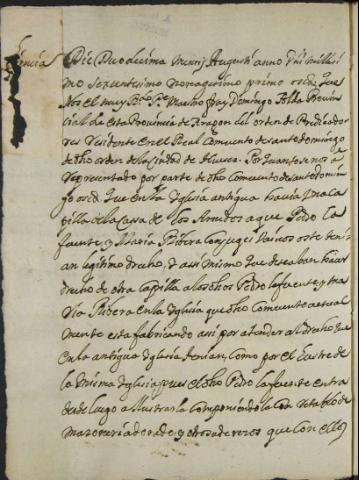 Die Duodecima Mensis Augusti anno Dni Millesi
mo sexcentesimo nonagesimo primo
Nos el muy Rdo Pe Maestro fray Domingo Provin
cial de esta Provincia de Aragon del orden de Predicado
res Residente en el Real Convento de santo domingo
de dho orden de la Ciudad de Huesca. Por quanto se nos á
representado por parte de dho Convento de santo domin
go que en la Iglesia antigua havia una Ca
pilla de la Casa de los a que Pedro La
fuente y Maria Ribera Conjuges Vecinos este teni
an legitimo drecho, y assi mismo que deseaban hacer
drecho de otra Capilla a los dhos Pedro lafuente, y Ma
ria Ribera en la Iglesia que dho Convento actual
mente esta fabricando assi por atender al drecho que
en la antigua Iglesia tenian, como por el Lustre de
la misma Iglesia, pues el dho Pedro lafuente entra
desde luego a Ilustrarla Componiendola con retablo de
mazoneria dorado, y otros aderezos que con ello